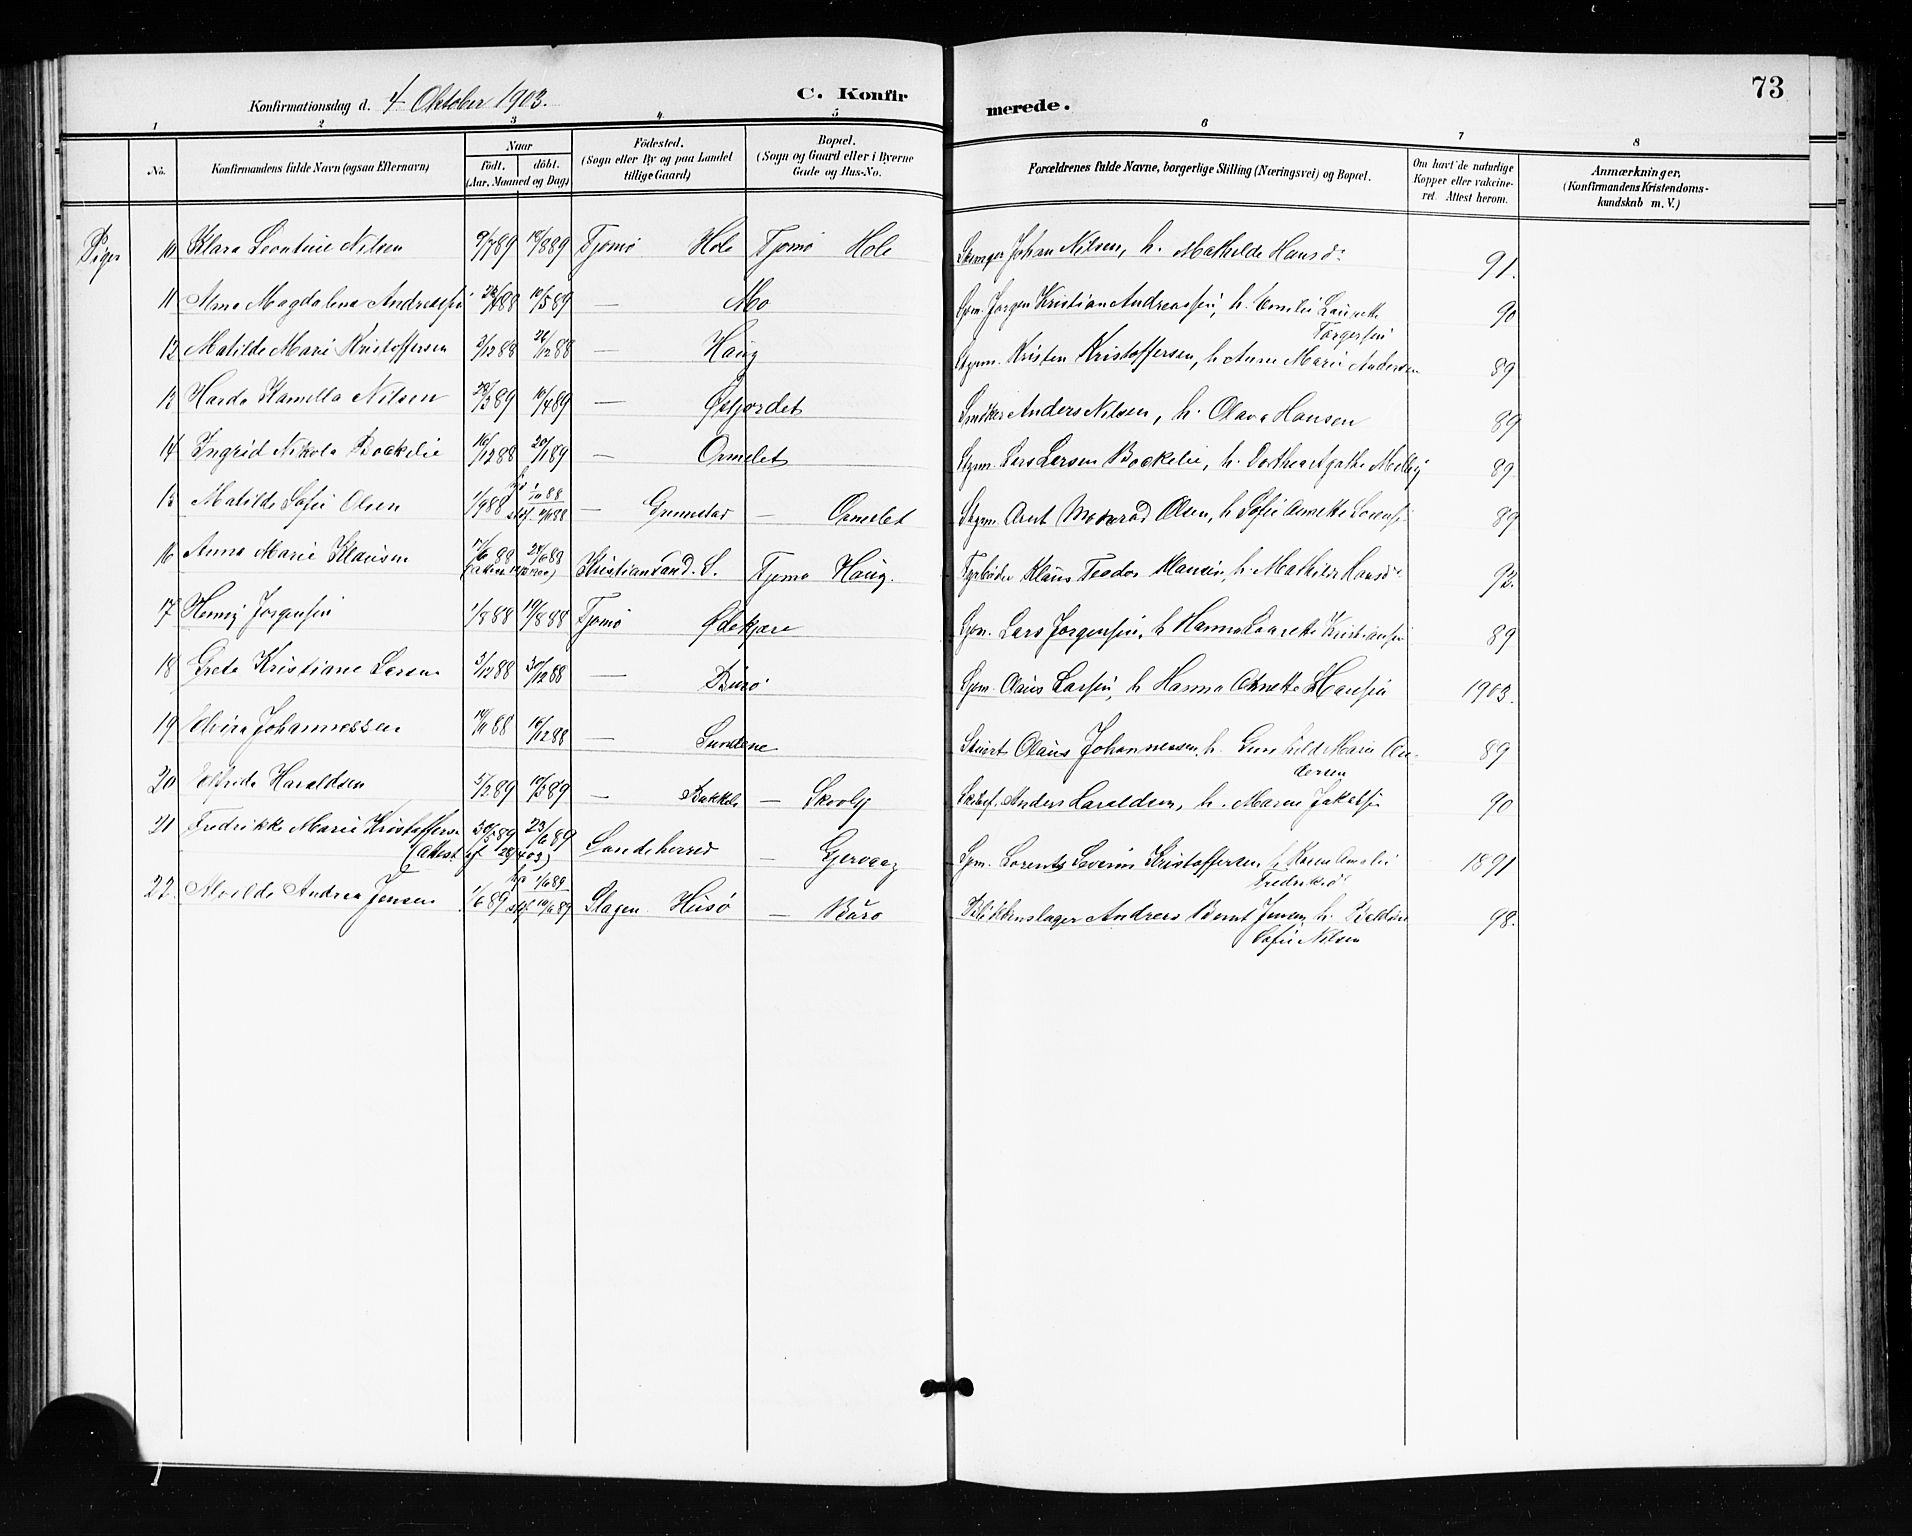 73
Konfirmationsdag d. 4 Oktober 1903.
C. Konfirmerede.
1 2 3 4 5 6 7 8
No.
Konfirmandens fulde Navn (ogsaa Efternavn)
Naar
født. døbt.
(Aar, Maaned og Dag)
Födested.
(Sogn eller By og paa Landet
tillige Gaard)
Bopæl.
(Sogn og Gaard eller i Byerne
Gade og Hus-No.
Forældrenes fulde Navne, borgerlige Stilling (Næringsvei) og Bopæl.
Om havt de naturlige
Kopper eller vakcine-
ret. Attest herom.
Anmærkninger,
(Konfirmandens Kristendoms-
kundskab m. V.)
Piger 10 Klara Leontine Nilsen 9/7 89 18/8 89 Tjømø Hole Tjømø Hole Johan Nilsen, h. Mathilde Hansd: 91.
11 Alma Magdalena Andreassen 10/5 89 — Mo Jørgen Kristian Andreassen, h. Emilie Laurette 90
Torgersen
12 Matilde Marie Kristoffersen 2/12 88 26/12 88 — Haug Styrm. Kristen Kristoffersen, h Anne Marie Andersen 89
13 Harda Kamella Nilsen 28/3 89 — Østjordet Snedker Anders Nilsen, h. Olava Hansen 89
14 Ingrid Nikola Bockelie 16/12 88 20/1 89 — Ormelet Styrm. Lars Larsen Bockelie, h. Dorthea Agathe Melby 89.
15 Matilde Sofie Olsen 1/9 88 — Grimestad — Ormelet Styrm. Arnt Monrad Olsen, h Sofie Annette Sørens. 89
16 Anna Marie Klausen 24/6 89 Kristiansand. S. Tjømø Haug. Fyrbøder Klaus Teodor Klausen, h. Mathilde Hansd: 92.
17 Henny Jørgensen 1/8 88 19/8 88 Tjømø Ødekjære Lars Jørgensen, h Hanna Laurette Kristiansen 89
18 Greta Kristiane Larsen 3/12 88 30/12 88 — Burø Claus Larsen, h Hanna Annette Hansen 1903.
19 Elvira Johannessen 14/11 88 16/12 88 — Sundene Stuert Olaus Johannessen, h. Gunhild Marie An- 89
dersen
20 Elfrida Haraldsen 5/2 89 17/3 89 — Bakken — Skovly Anders Haraldsen, h. Maren Jakobsen 90
21 Fredrikke Marie Kristoffersen 30/5 89 23/6 89 Sandeherred — Gjervaag Lorents Severin Kristoffersen h Karen Amalie 1891
(attest af 28/4 03) Fredriksd:
22. Alvilde Andrea Jensen 1/6 89 1/6 89 Slagen Husø — Burø Blikkenslager Andreas Bernt Jensen, h. 98.
Sofie Nilsen